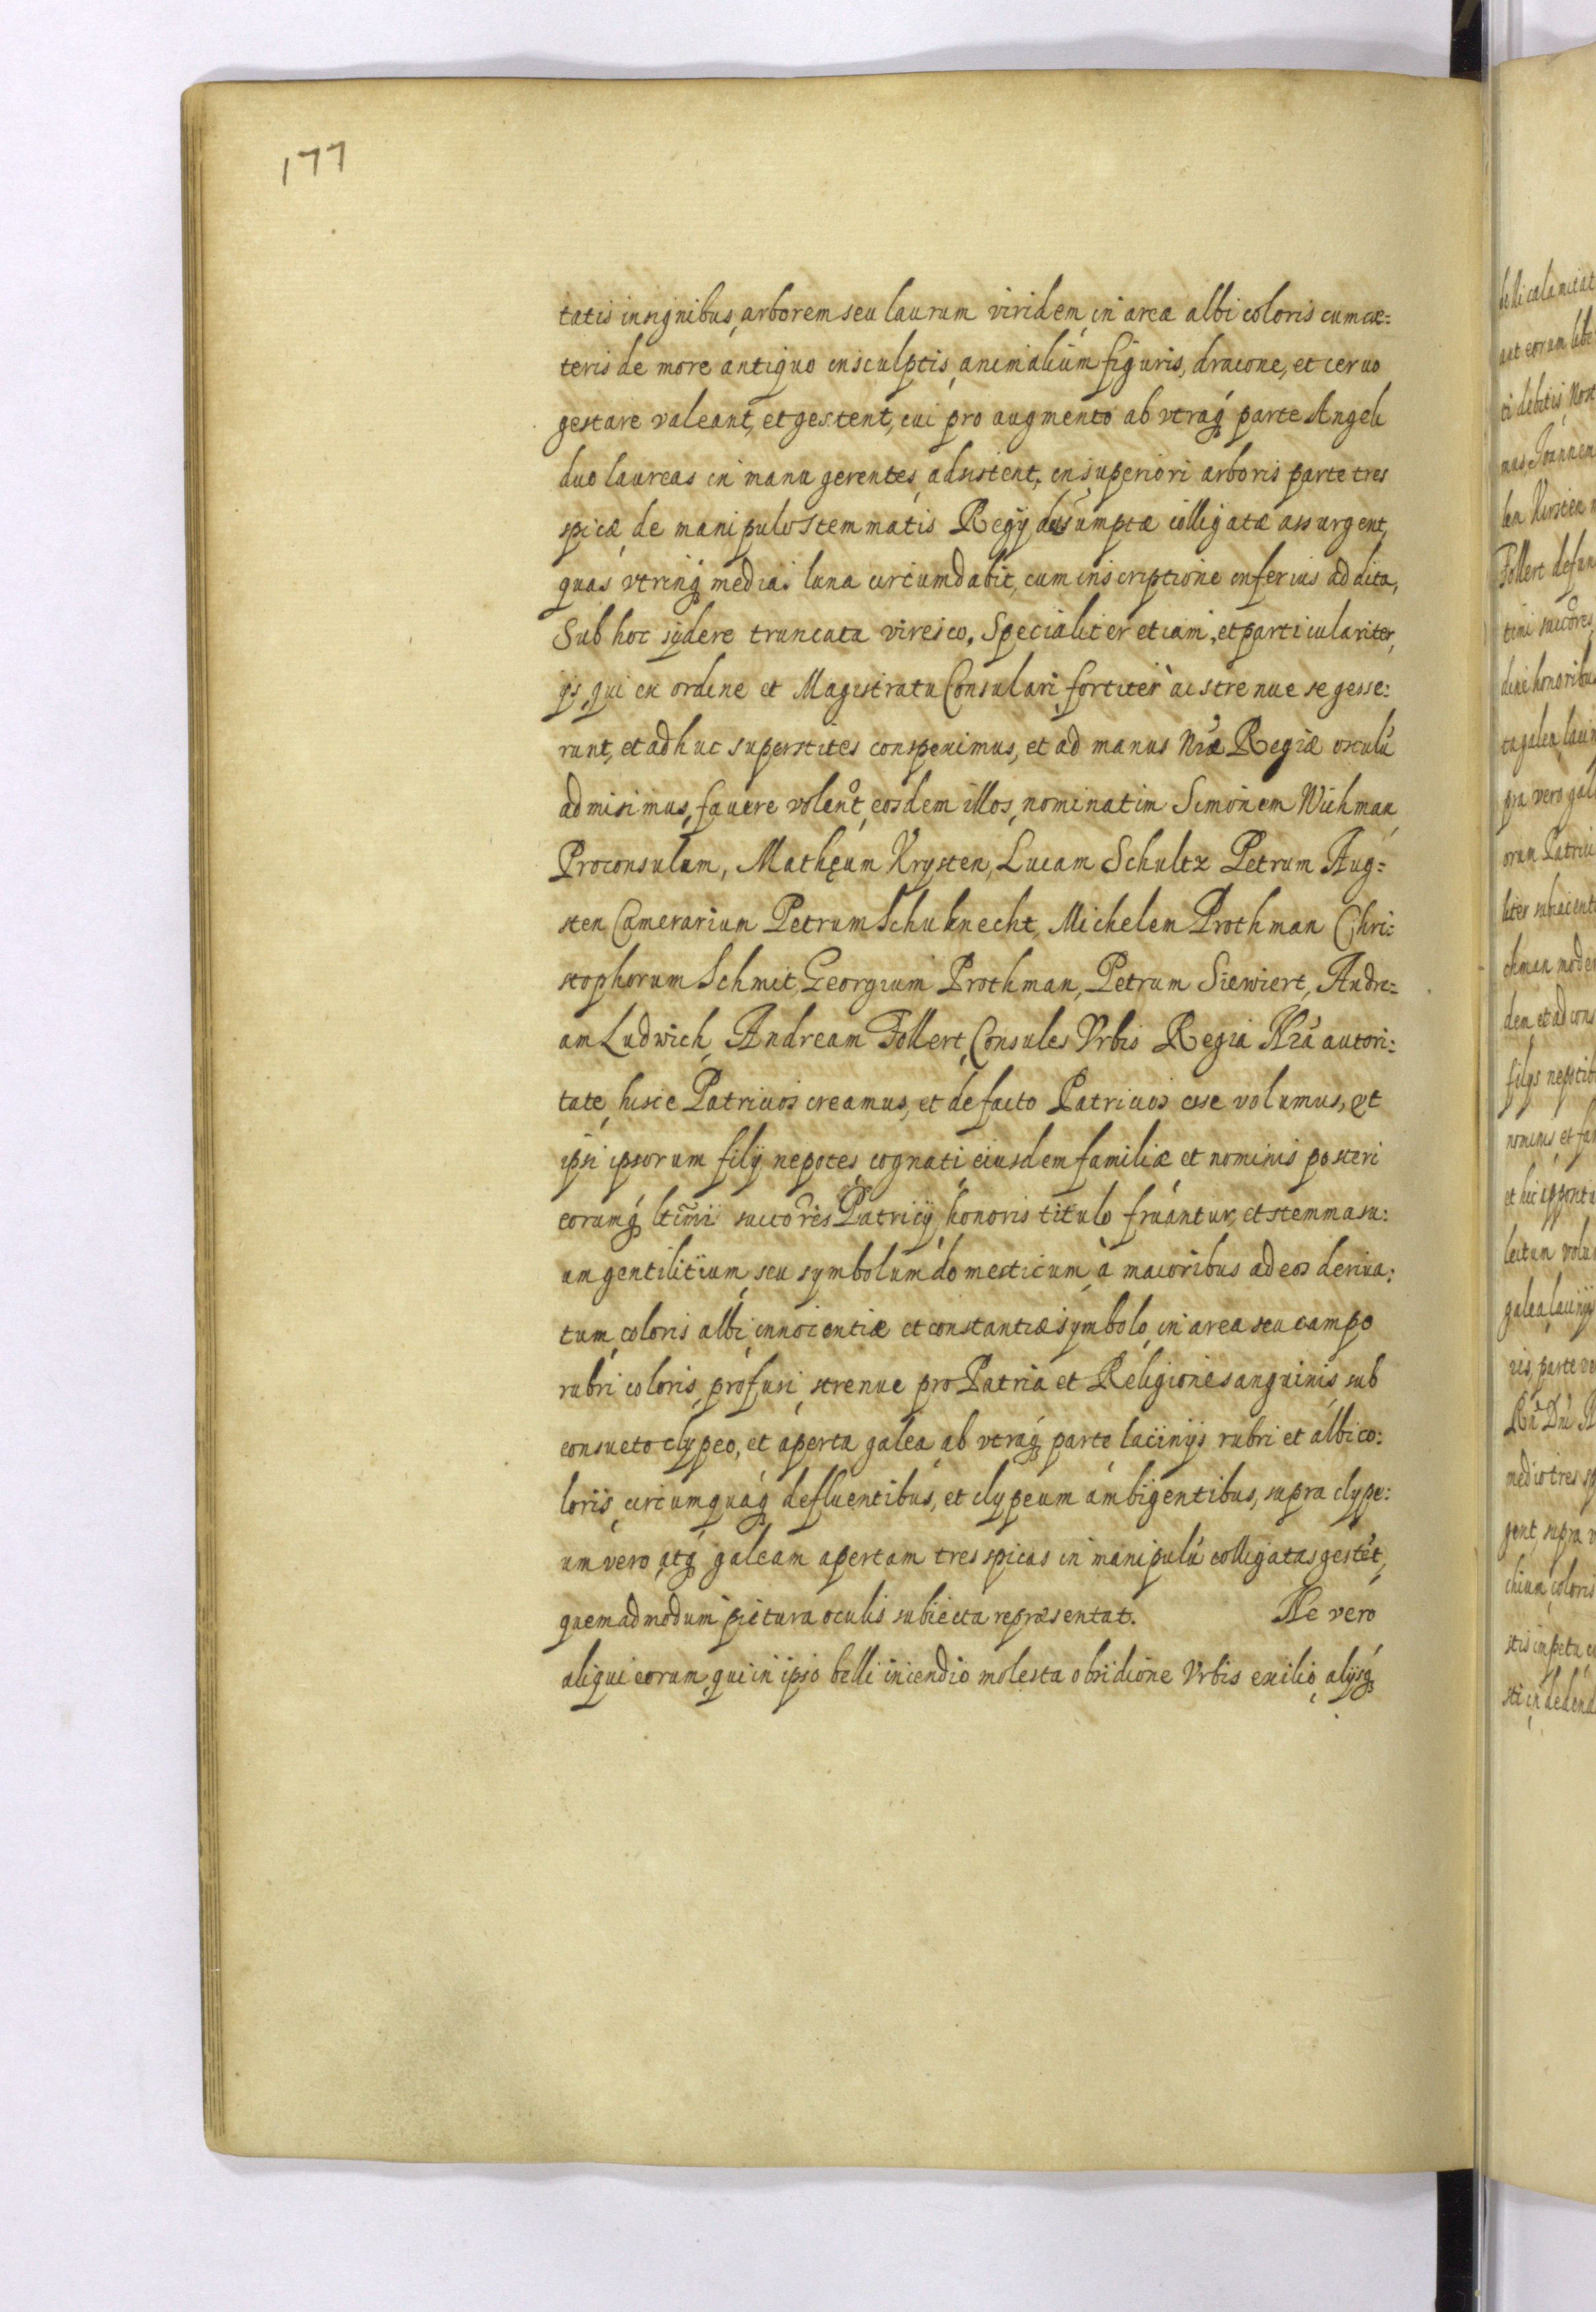 177
tatis insignibus, arborem seu laurum viridem, in area albi coloris cum cæ=
teris de more antiquo insculptis, animalium figuris, dracone, et ceruo
gestare valeant, et gestent, cui pro augmento ab vtraq́ parte Angeli
duo laureas in manu gerentes, adsistent, in superiori arboris parte tres
spicæ, de manipulo stemmatis Regij desumptæ colligatæ assurgent,
quas vtrinq́ media luna circumdabit, cum inscriptione inferius addita,
Sub hoc sydere truncata viresco. Specialiter etiam, et particulariter,
ijs, qui ex ordine et Magistratu Consulari, fortiter ac strenue se gesse:
runt, et adhuc superstites conspeximus, et ad manus Nræ Regiæ osculũ
admisimus, fauere volent, eosdem illos, nominatim Simonem Wichman,
Proconsulem, Mathęum Krysten, Lucam Schultz Petrum Aug=
sten Camerarium Petrum Schuknecht, Michelem Prothman Chri:
stophorum Schmit, Georgium Prothman, Petrum Siewiert, Andre=
am Ludwich, Andream Follert, Consules Vrbis Regia Nrá autori:
tate, hisce Patricios creamus, et de facto Patricios esse volumus, vt
ipsi ipsorum filij nepotes, cognati, eiusdem familiæ et nominis posteri
eorumq́ ltimi succores Patricij honoris titulo fruantur, et stemma su:
um gentilitium, seu symbolum domesticum, à maioribus ad eos deriua:
tum, coloris albi, innocentiæ et constantiæ symbolo, in area seu campo
rubri coloris, profusi, strenue pro Patria et Religione sanguinis, sub
consueto clypeo, et aperta galea, ab vtraq́ parte, lacinijs rubri et albi co:
loris, circumquaq́ defluentibus, et clypeum ambigentibus, supra clype:
um vero, atq́ galeam apertam tres spicas in manipulũ colligatas gestẽt,
quemadmodum pictura oculis subiecta repræsentat. Ne vero
aliqui eorum, qui in ipso belli incendio molesta obsidione Vrbis exilio, alijsq́
belli calamitat
aut eorum libe
ti debitis, Nost
mus Joannem
Follert defun
timi succores,
dine honoribus
ta galea, lacin
pra vero gal
orum Patrici
liter subiacent
chman mode
dem et ad cons
filijs nepotib
nominis, et fam
lectum volu
galea, lacinijs
ris, parte ve
medio tres sp
gent, supra v
chium, coloris
stis impetu, e